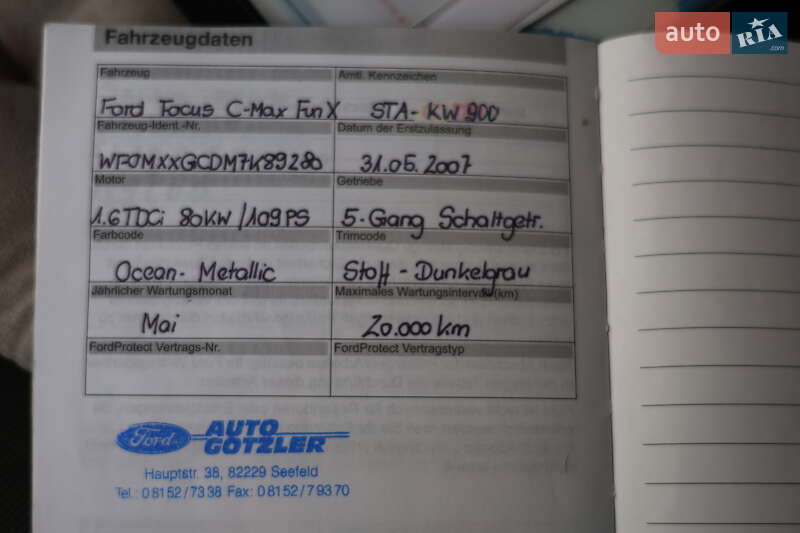 auto
RIA
.com
Fahrzeugdaten
Fahrzeug
Amtl. Kennzeichen
Ford Focus C-Max Fun X
STA-KW 900
Fahrzeug-Ident.-Nr.
Datum der Erstzulassung
WF0MXXGCDM7K89280
31.05.2007
Motor
Getriebe
1.6TDCi 80KW/109PS
5-Gang Schaltgetr.
Farbcode
Trimcode
Ocean-Metallic
Stoff-Dunkelgrau
Jährlicher Wartungsmonat
Maximales Wartungsintervall (km)
Mai
20.000km
FordProtect Vertrags-Nr.
FordProtect Vertragstyp
Ford
AUTO
GÖTZLER
Hauptstr. 38, 82229 Seefeld
Tel.: 0 81 52 / 73 38 Fax: 0 81 52 / 7 93 70